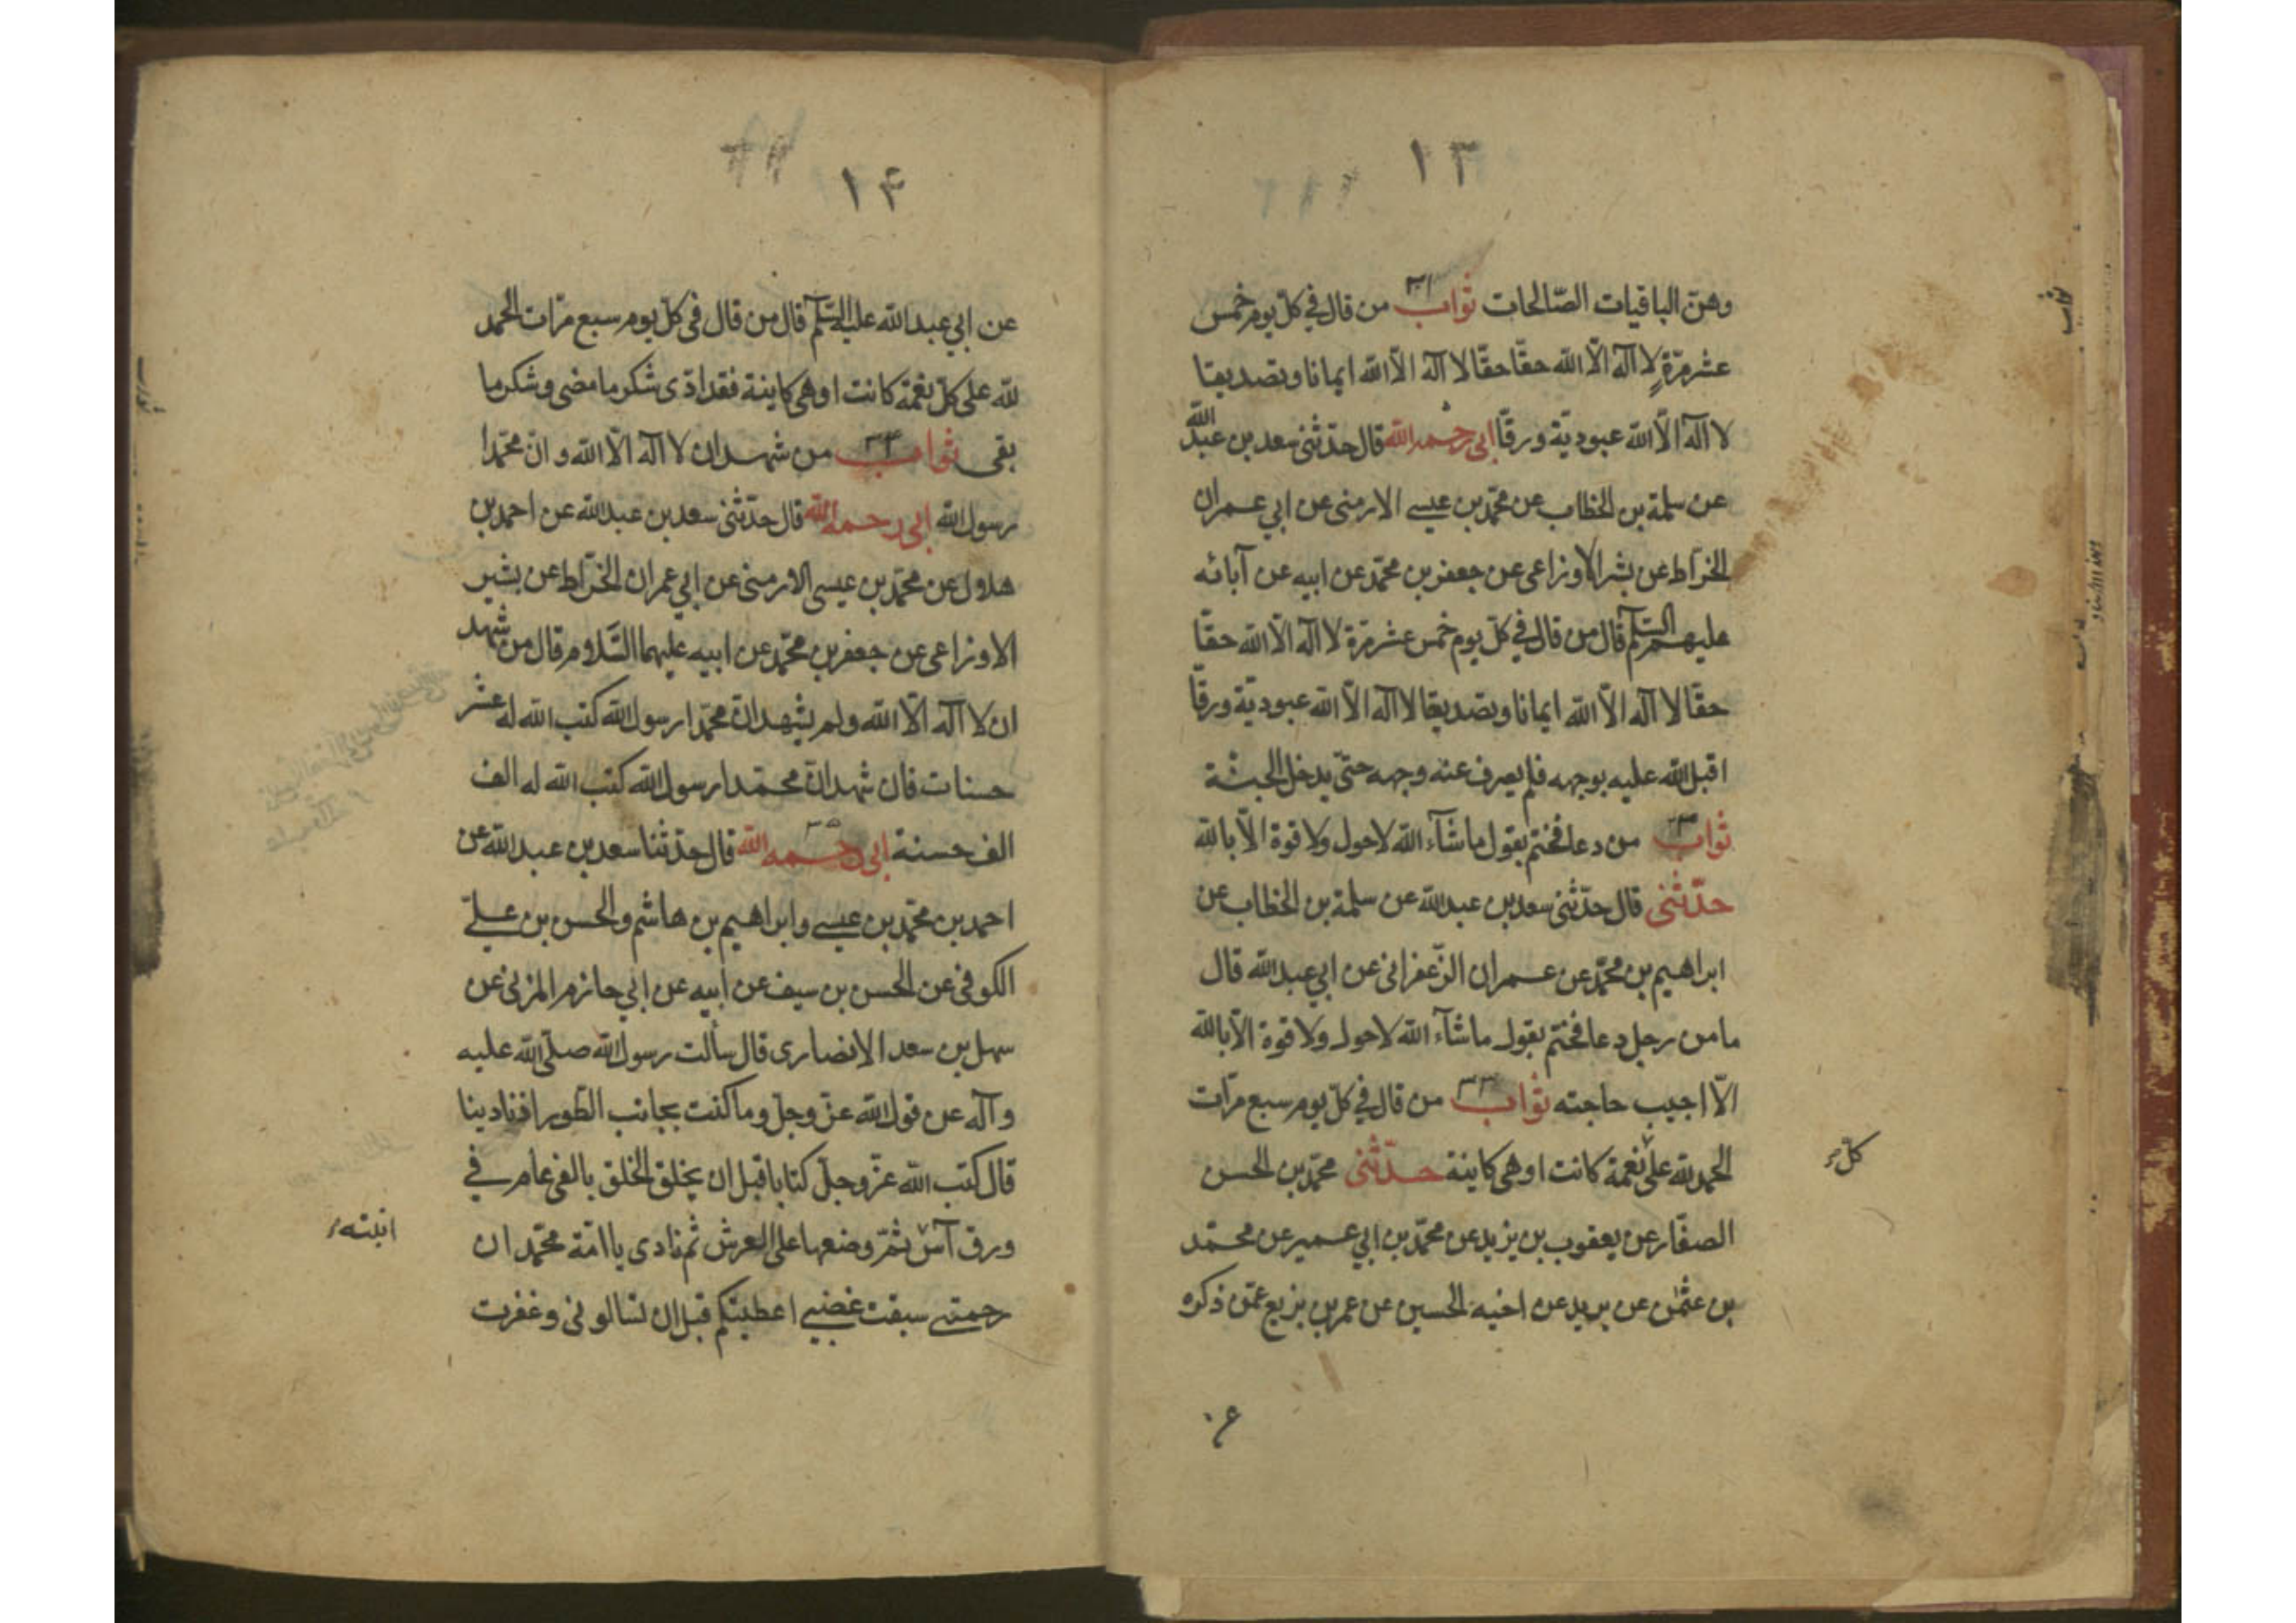 ١٣
وهنّ الباقيات الصّالحات ثواب ٣١ من قال في كلّ يوم خمس
عشر مرّة لا اله الّا الله حقّا حقّا لا اله الّا الله ايمانا وتصديقا
لا اله الّا الله عبوديّة ورقّا ابي رحمه الله قال حدّثني سعد بن عبد الله
عن سلمة بن الخطاب عن محمّد بن عيسى الارمني عن ابي عمران
الخرّاط عن بشر الاوزاعي عن جعفر بن محمّد عن ابيه عن آبائه
عليهم السّلم قال من قال في كلّ يوم خمس عشر مرّة لا اله الّا الله حقّا
حقّا لا اله الّا الله ايمانا وتصديقا لا اله الّا الله عبوديّة ورقّا
اقبل الله عليه بوجهه فلم يصرف عنه وجهه حتّى يدخل الجنّة
ثواب من دعا فختم بقول ما شآء الله لا حول ولا قوة الّا بالله
حدّثني قال حدّثني سعد بن عبد الله عن سلمة بن الخطاب عن
ابراهيم بن محمّد عن عمران الزّعفراني عن ابي عبد الله قال
ما من رجل دعا فختم بقول ما شآء الله لا حول ولا قوة الّا بالله
الّا اجيب حاجته ثواب ٣٣ من قال في كلّ يوم سبع مرّات
الحمد لله على نعمة كانت او هي كاينة حدّثني محمّد بن الحسن
كلّ
الصفّار عن يعقوب بن يزيد عن محمّد بن ابي عمير عن محمّد
بن عثمن عن يريد عن اخيه الحسين عن عمر بن بزيع عمّن ذكره
١۴
عن ابي عبد الله عليه السّلم قال من قال في كلّ يوم سبع مرّات الحمد
لله على كلّ نعمة كانت او هي كاينة فقد ادّى شكر ما مضى وشكر ما
بقى ثواب ٣۴ من شهد ان لا اله الّا الله وانّ محمّدا
رسول الله ابي رحمه الله قال حدّثني سعد بن عبد الله عن احمد بن
هلال عن محمّد بن عيسى الارمني عن ابي عمران الخرّاط عن بشير
الاوزاعي عن جعفر بن محمّد عن ابيه عليهما السّلام قال من شهد
ان لا اله الّا الله ولم يشهد انّ محمّدا رسول الله كتب الله له عشر
حسنات فان شهد انّ محمّدا رسول الله كتب الله له الف
الف حسنة ٣٥ ابي رحمه الله قال حدّثنا سعد بن عبد الله عن
احمد بن محمّد بن عيسى وابراهيم بن هاشم والحسن بن عليّ
الكوفي عن الحسن بن سيف عن ابيه عن ابي حازم المزني عن
سهل بن سعد الانصاري قال سألت رسول الله صلّى الله عليه
وآله عن قول الله عزّ وجلّ وما كنت بجانب الطّور اذ نادينا
قال كتب الله عزّ وجلّ كتابا قبل ان يخلق الخلق بالفي عام في
ورق آس ثمّ وضعها على العرش ثم نادى يا امّة محمّد ان
انبته
رحمتى سبقت غضبي اعطيتكم قبل ان تسالوني وغفرت